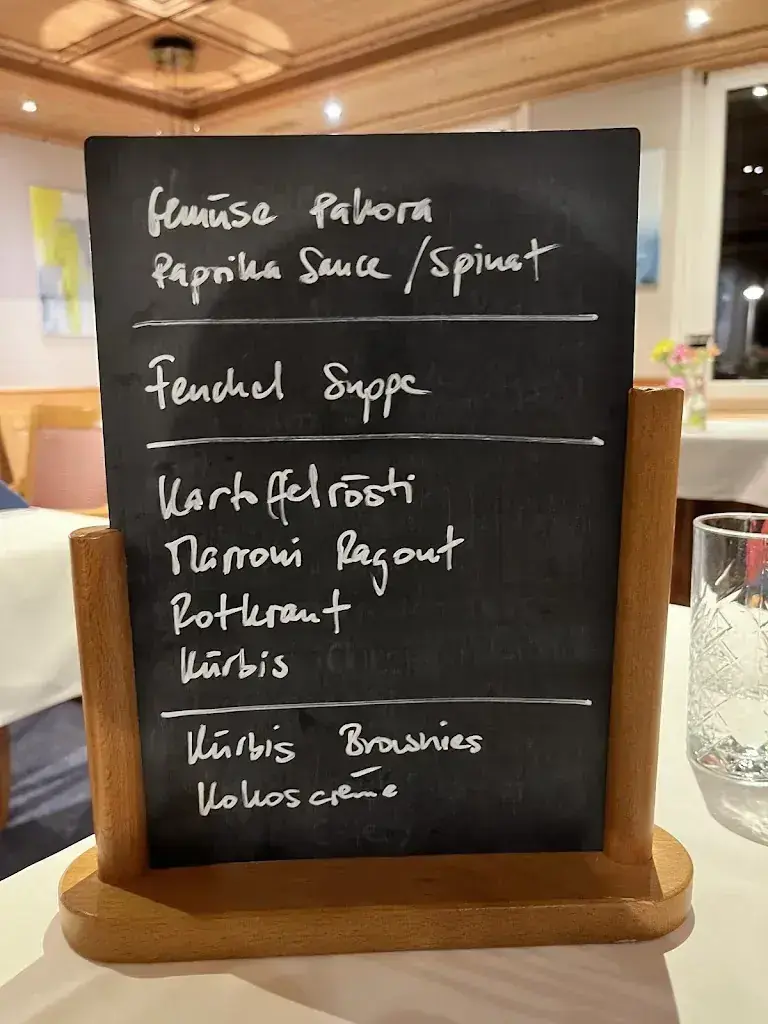 Gemüse Pakora
Paprika Sauce / Spinat
Fenchel Suppe
Kartoffelrösti
Marroni Ragout
Rotkraut
Kürbis
Kürbis Brownies
Kokoscrème